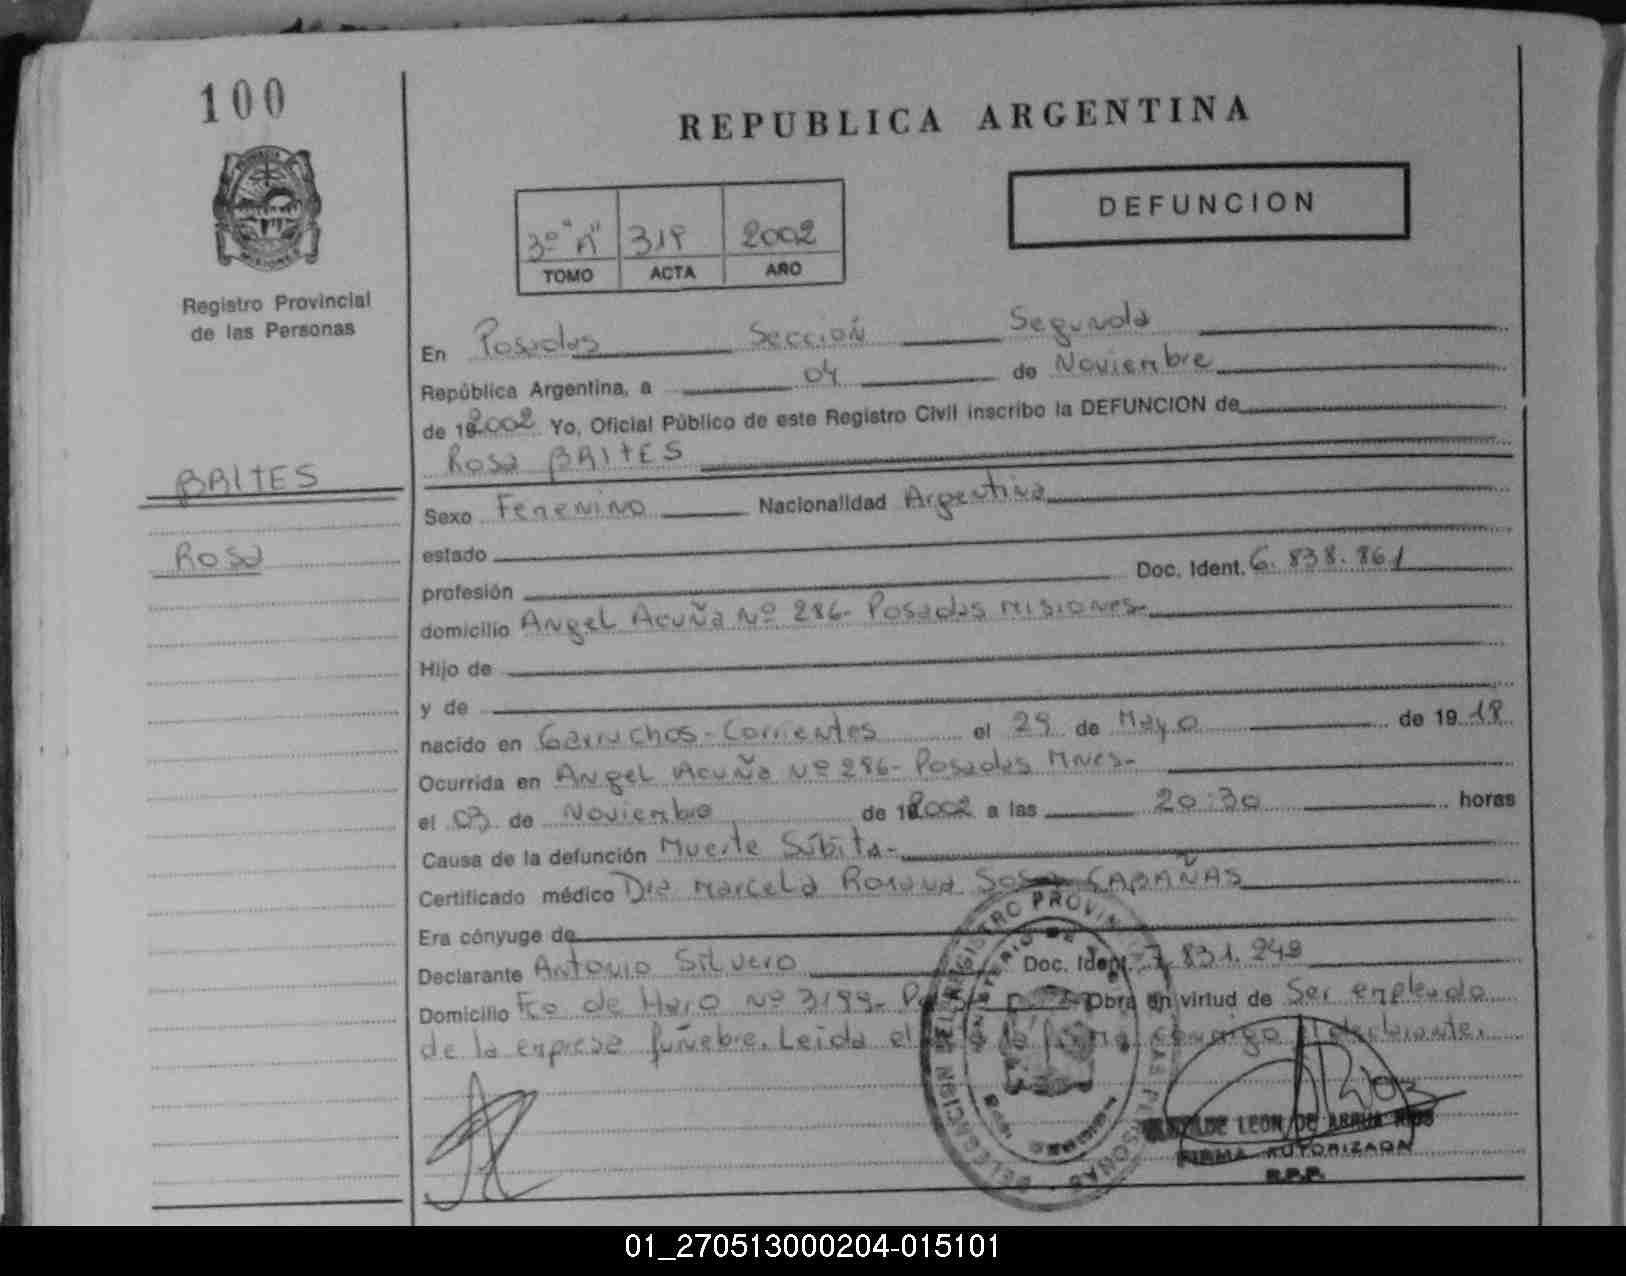 100
REPUBLICA ARGENTINA
DEFUNCION
3º "A" 319 2002
TOMO ACTA AÑO
Registro Provincial
de las Personas
En Posadas Sección Segunda
República Argentina, a 04 de Noviembre
de 19 2002 Yo, Oficial Público de este Registro Civil inscribo la DEFUNCION de
Rosa BRITES
BRITES
Rosa
Sexo Femenino Nacionalidad Argentina
estado
profesión Doc. Ident. 6.838.861
domicilio Angel Acuña Nº 286- Posadas Misiones-
Hijo de
y de
nacido en Garruchos-Corrientes el 29 de Mayo de 19 18
Ocurrida en Angel Acuña Nº 286- Posadas Mnes-
el 03 de Noviembre de 2002 a las 20:30 horas
Causa de la defunción Muerte Súbita-
Certificado médico Dra Marcela Rosana Sosa CABAÑAS
Era cónyuge de
Declarante Antonio Silvero Doc. Ident. 7.831.249
Domicilio Fco de Haro Nº 3199- Obra en virtud de Ser empleado
de la empresa fúñebre. Leida el la firma conmigo el declarante.
REGISTRO PROVINCIAL DE LAS PERSONAS
DELEGACION
LEON DE ARRUA RIOS
FIRMA AUTORIZADA
R.P.P.
01_270513000204-015101